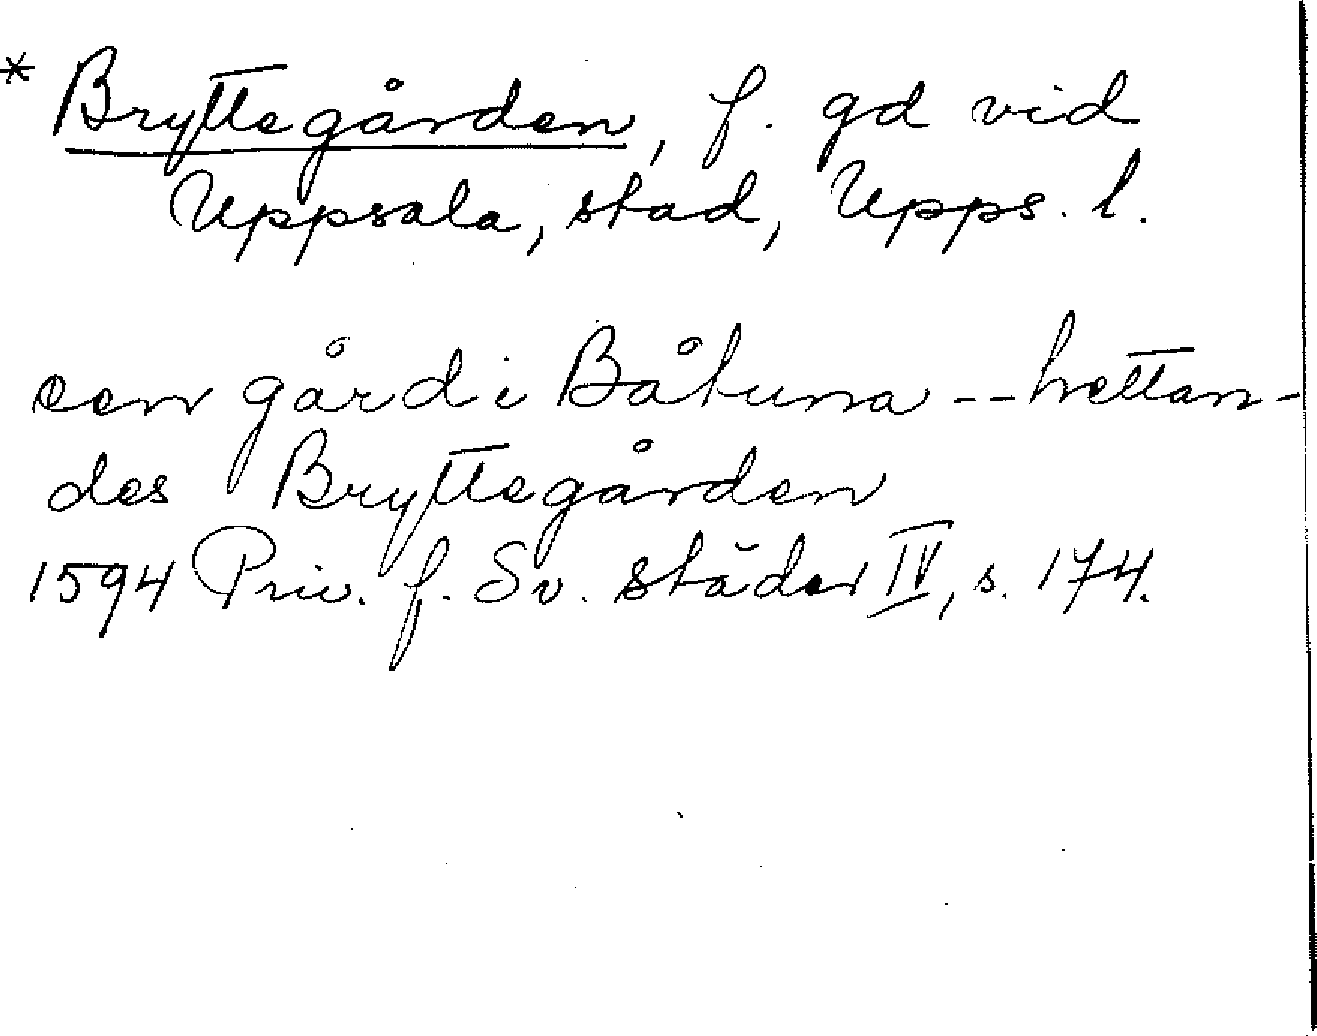 * Bryttegården, f. gd vid
Uppsala, stad, Upps. l.
een gård i Båtuna -- hettan-
des Bryttegården
1594 Priv. f. Sv. städer IV, s. 174.